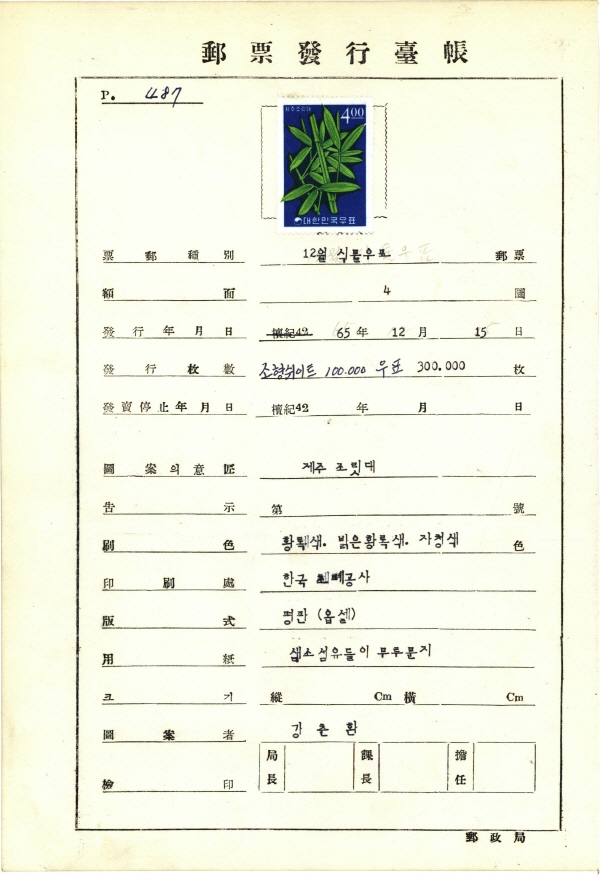 郵票發行臺帳
P. 487
400
제주조릿대
대한민국우표
票郵種別 12월 식물우표 郵票
額面 4 圜
發行年月日 檀紀42 65年 12月 15日
發行枚數 조형쉬이트 100.000 우표 300.000 枚
發賣停止年月日 檀紀42 年 月 日
圖案의意匠 제주 조릿대
告示 第 號
刷色 황록색. 밝은황록색. 자청색 色
印刷處 한국 조폐공사
版式 평판 (옵셑)
用紙 색소섬유들이 무투문지
크기 縱 Cm 橫 Cm
圖案者 강춘환
檢印 局長 課長 擔任
郵政局